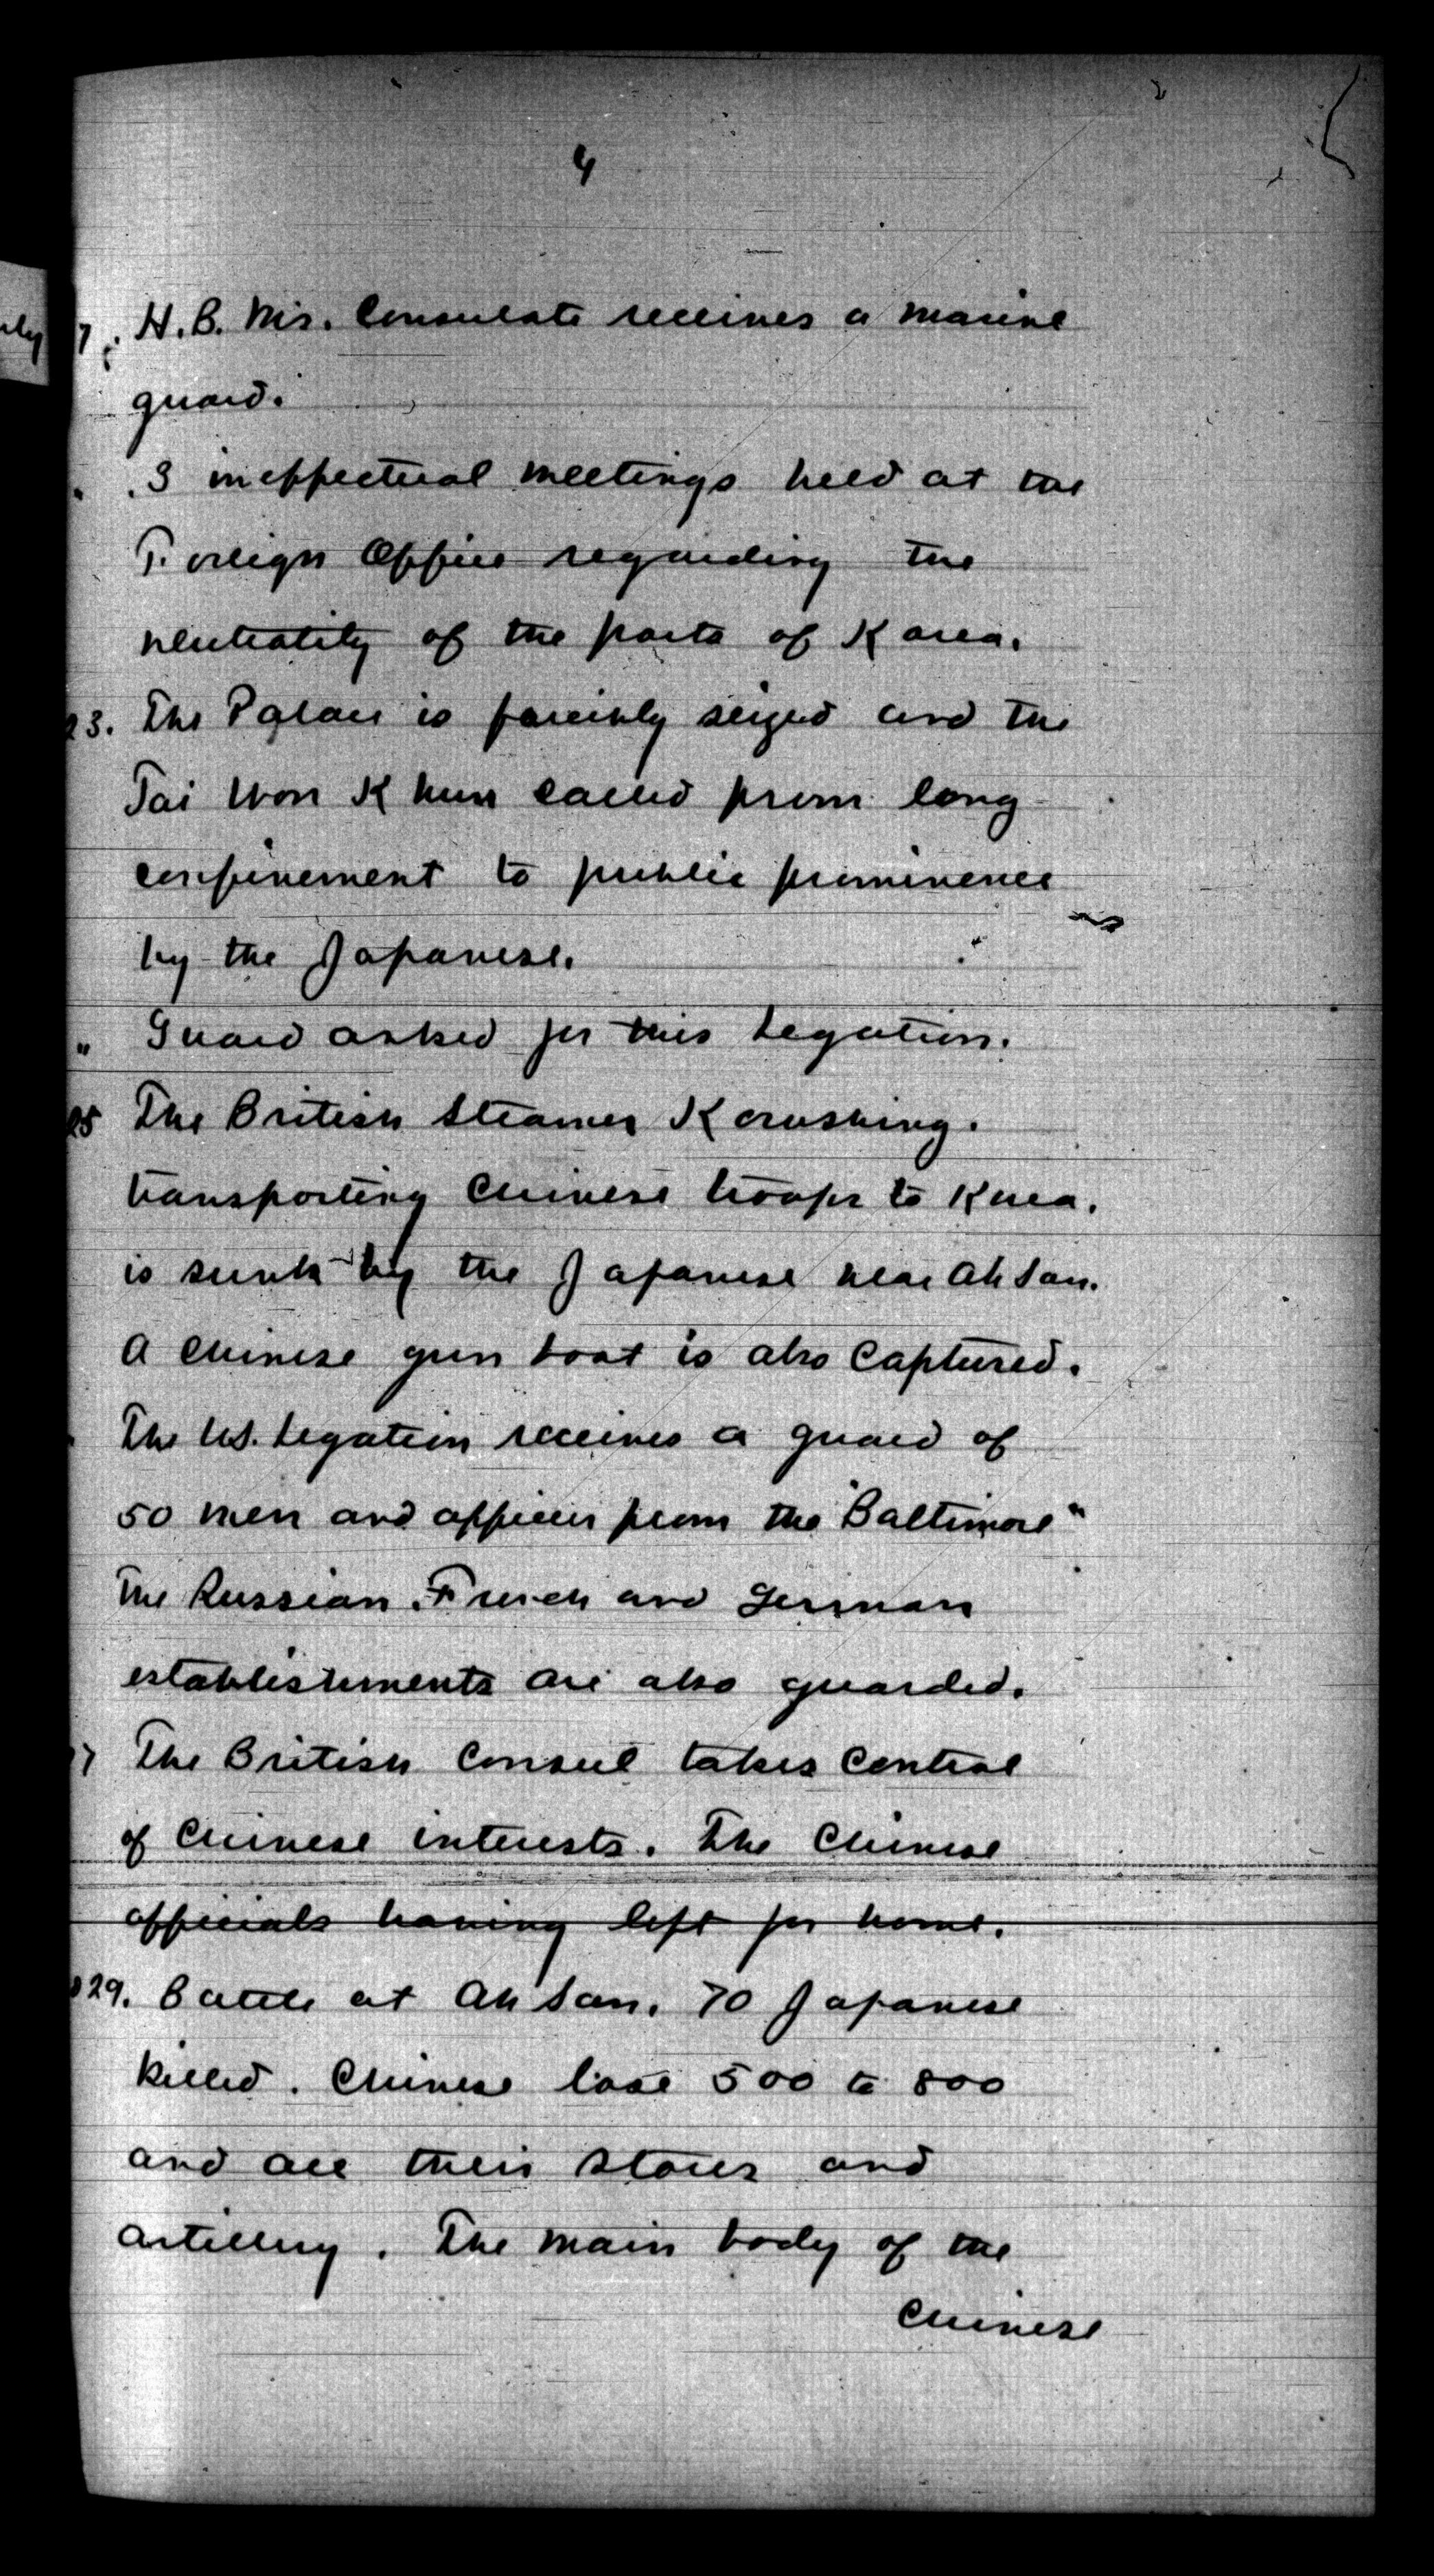 4
7. H.B. M's. Consulate receives a marine
guard.
" .3 ineffectual meetings held at the
Foreign Office regarding the
neutrality of the ports of Korea.
23. The Palace is forcibly seized and the
Tai Won Khun called from long
confinement to public prominence
by the Japanese.
" Guard asked for this Legation.
25 The British Steamer Kowshing.
transporting Chinese troops to Korea.
is sunk by the Japanese near Ah San.
A Chinese gun boat is also captured.
The U.S. Legation receives a guard of
50 men and officers from the "Baltimore"
The Russian. French and German
establishments are also guarded.
7 The British Consul takes control
of Chinese interests. The Chinese
officials having left for home.
29. Battle at Ah San. 70 Japanese
killed. Chinese lose 500 to 800
and all their stores and
artillery. The main body of the
Chinese